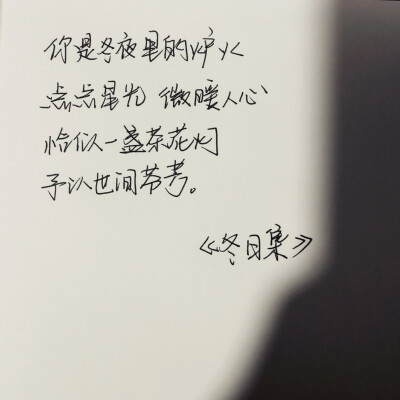 你是冬夜里的炉火
点点星光 微暖人心
恰似一盏茶花灯
予以世间芬考。
《冬日集》